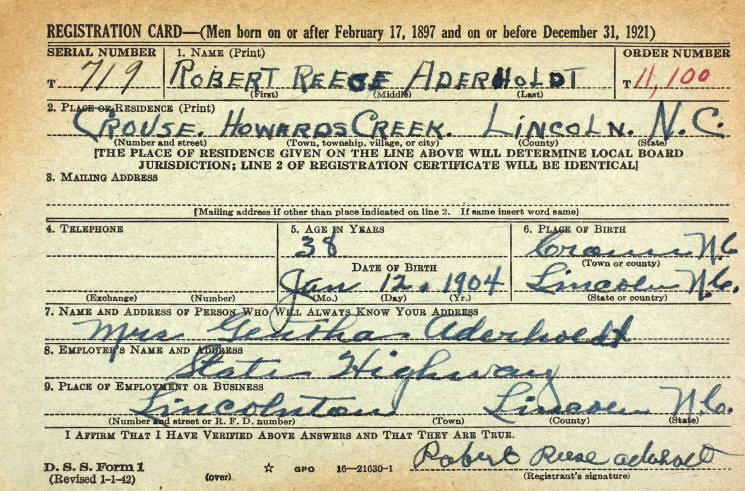 REGISTRATION CARD—(Men born on or after February 17, 1897 and on or before December 31, 1921)
SERIAL NUMBER 1. NAME (Print) ORDER NUMBER
T 719 ROBERT REECE ADERHOLDT T 11,100
(First) (Middle) (Last)
2. PLACE OF RESIDENCE (Print)
CROUSE. HOWARDS CREEK. LINCOLN. N.C.
(Number and street) (Town, township, village, or city) (County) (State)
[THE PLACE OF RESIDENCE GIVEN ON THE LINE ABOVE WILL DETERMINE LOCAL BOARD
JURISDICTION; LINE 2 OF REGISTRATION CERTIFICATE WILL BE IDENTICAL]
3. MAILING ADDRESS
[Mailing address if other than place indicated on line 2. If same insert word same]
4. TELEPHONE 5. AGE IN YEARS 6. PLACE OF BIRTH
38 N.C
DATE OF BIRTH (Town or county)
Jan 12. 1904 Lincoln N.C.
(Exchange) (Number) (Mo.) (Day) (Yr.) (State or country)
7. NAME AND ADDRESS OF PERSON WHO WILL ALWAYS KNOW YOUR ADDRESS
Mrs Aderholdt
8. EMPLOYER'S NAME AND ADDRESS
State Highway
9. PLACE OF EMPLOYMENT OR BUSINESS
Lincolnton Lincoln N.C.
(Number and street or R. F. D. number) (Town) (County) (State)
I AFFIRM THAT I HAVE VERIFIED ABOVE ANSWERS AND THAT THEY ARE TRUE.
Robert Reese aderholt
D. S. S. Form 1
(Revised 1-1-42) (over) ☆ GPO 16—21630-1 (Registrant's signature)